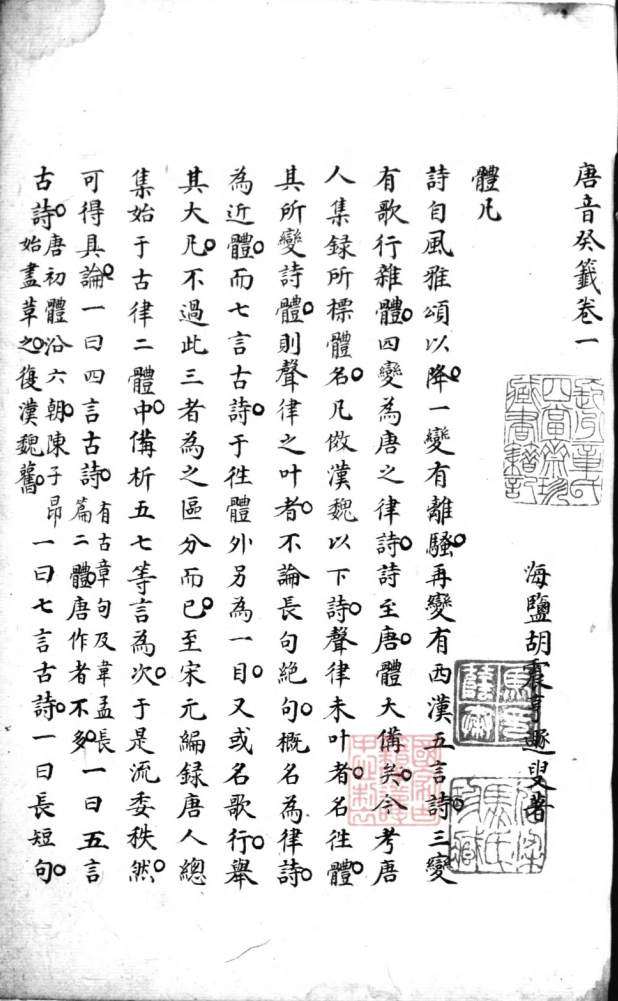 唐音癸籤卷一
海鹽胡震亨遯叟著
體凡
詩自風雅頌以降。一變有離騷。再變有西漢五言詩。三變
有歌行雜體。四變為唐之律詩。詩至唐。體大備矣。今考唐
人集録所標體名。凡倣漢魏以下詩。聲律未叶者。名往體。
其所變詩體。則聲律之叶者。不論長句絕句。概名為律詩。
為近體。而七言古詩。于往體外另為一目。又或名歌行。舉
其大凡。不過此三者為之區分而已。至宋元編録唐人總
集始于古律二體中。備析五七等言為次。于是流委秩然。
可得具論。一曰四言古詩。有古章句及韋孟長篇二體。唐作者不多。一曰五言
古詩。唐初體沿六朝。陳子昂始盡草之。復漢魏舊。一曰七言古詩。一曰長短句。